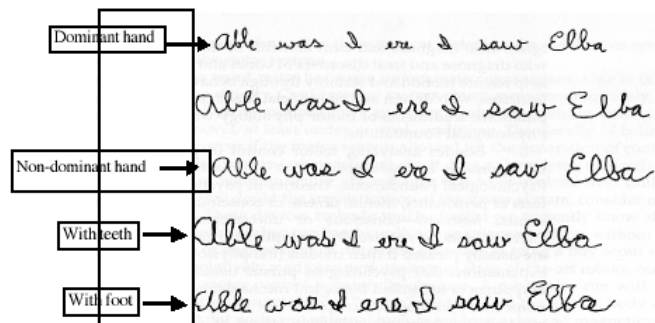 Dominant hand able was I ere I saw Elba
able was I ere I saw Elba
Non-dominant hand Able was I ere I saw Elba
With teeth Able was I ere I saw Elba
With foot Able was I ere I saw Elba